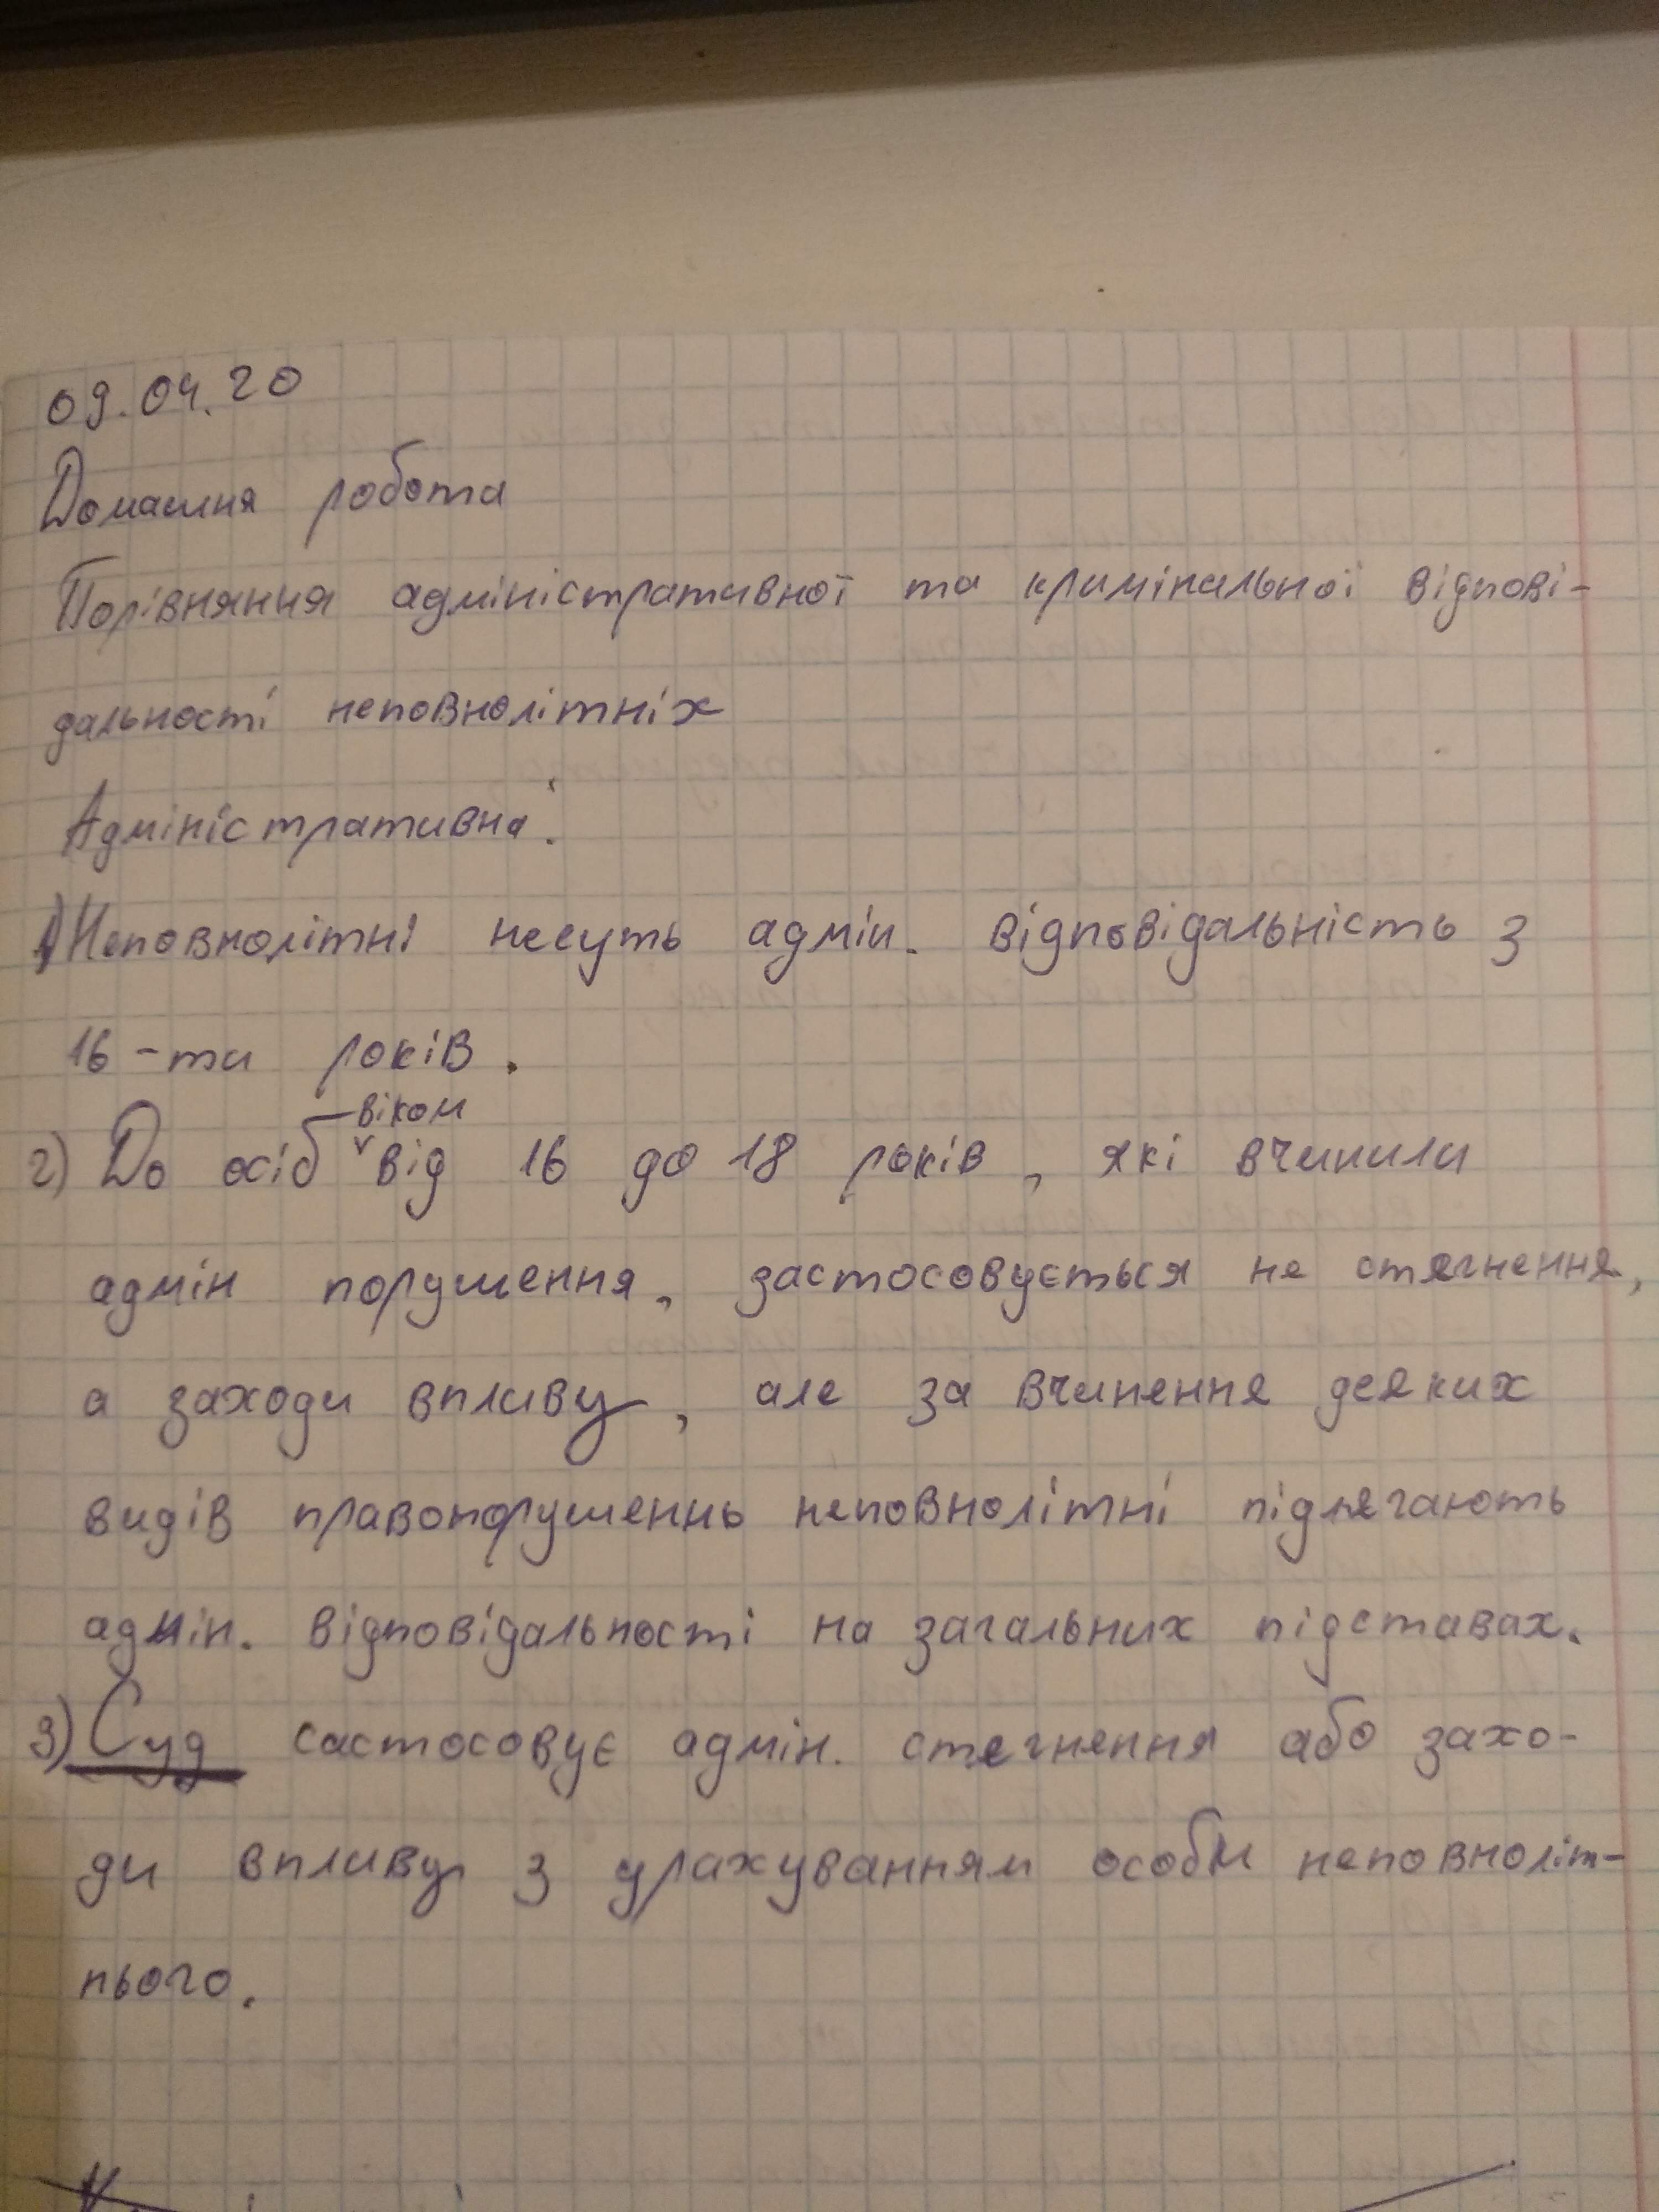 09.04.20
Домашня робота
Порівняння адміністративної та кримінальної відпові-
дальності неповнолітніх
Адміністративна:
1) Неповнолітні несуть адмін. відповідальність з
16-ти років.
2) До осіб віком від 16 до 18 років, які вчинили
адмін порушення, застосовується не стягнення,
а заходи впливу, але за вчинення деяких
видів правопорушеннь неповнолітні підлягають
адмін. відповідальності на загальних підставах.
3) Суд састосовує адмін. стягнення або захо-
ди впливу з урахуванням особи неповноліт-
нього.